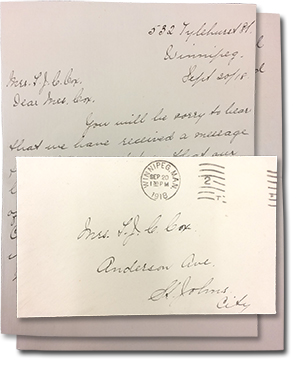 532 Tylehurst St.
Winnipeg.
Sept 20/18
Mrs. T. J. C. Cox.
Dear Mrs. Cox.
You will be sorry to hear
that we have received a message
that our
WINNIPEG, MAN.
SEP 20
PM
1918
Mrs. T. J. C. Cox.
Anderson Ave.
St. Johns.
City